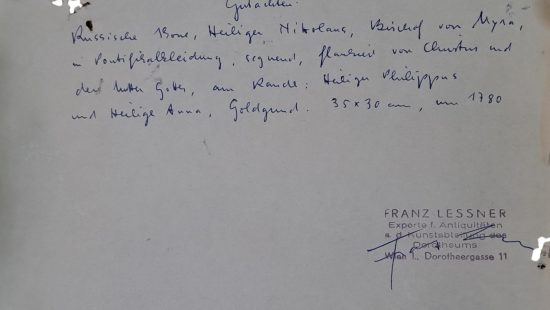 Gutachten:
Russische Ikone, Heiliger Nikolaus, Bischof von Myra,
in Pontifikalkleidung, segnend, flankiert von Christus und
der Mutter Gottes, am Rande: Heiliger Philippus
und Heilige Anna, Goldgrund. 35x30 cm, um 1780
FRANZ LESSNER
Experte f. Antiquitäten
a. d. Kunstabteilung des
Dorotheums
Wien 1., Dorotheergasse 11